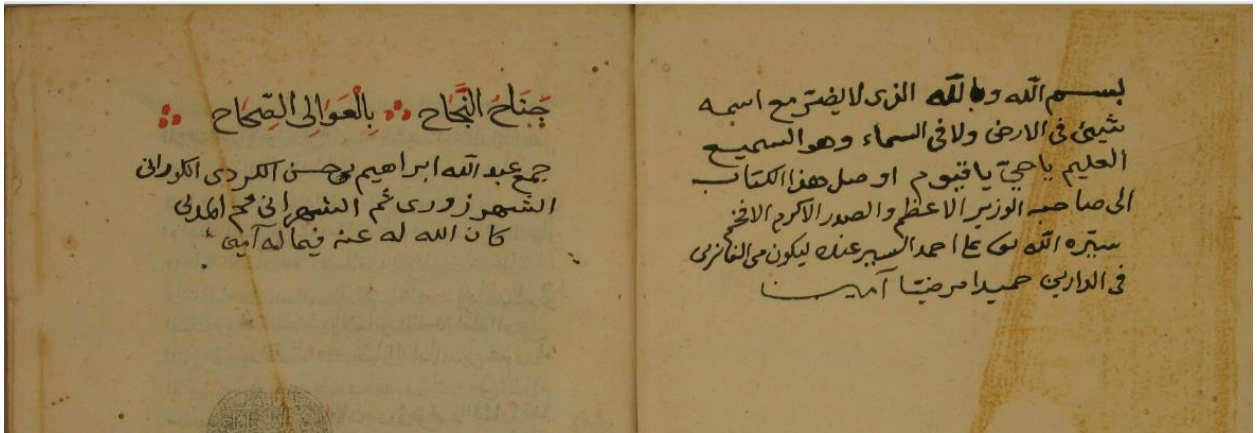 بسم الله وبالله الذي لا يضر مع اسمه
شيئ في الارض ولا في السماء وهو السميع
العليم يا حيّ يا قيوم اوصل هذا الكتاب
الى صاحبه الوزير الاعظم والصدر الاكرم الافخم
سيّره الله على احمد السير عنده ليكون من الفائزين
في الدارين حميدا مرضيّا آمينا
جَنَاحُ النَّجَاح بِالْعَوَالِى الصِّحَاح
جمع عبد الله ابراهيم بن حسن الكردى الكورانى
الشهرزورى ثم الشهرانى ثم المدنى
كان الله له عنه فيما له آمين